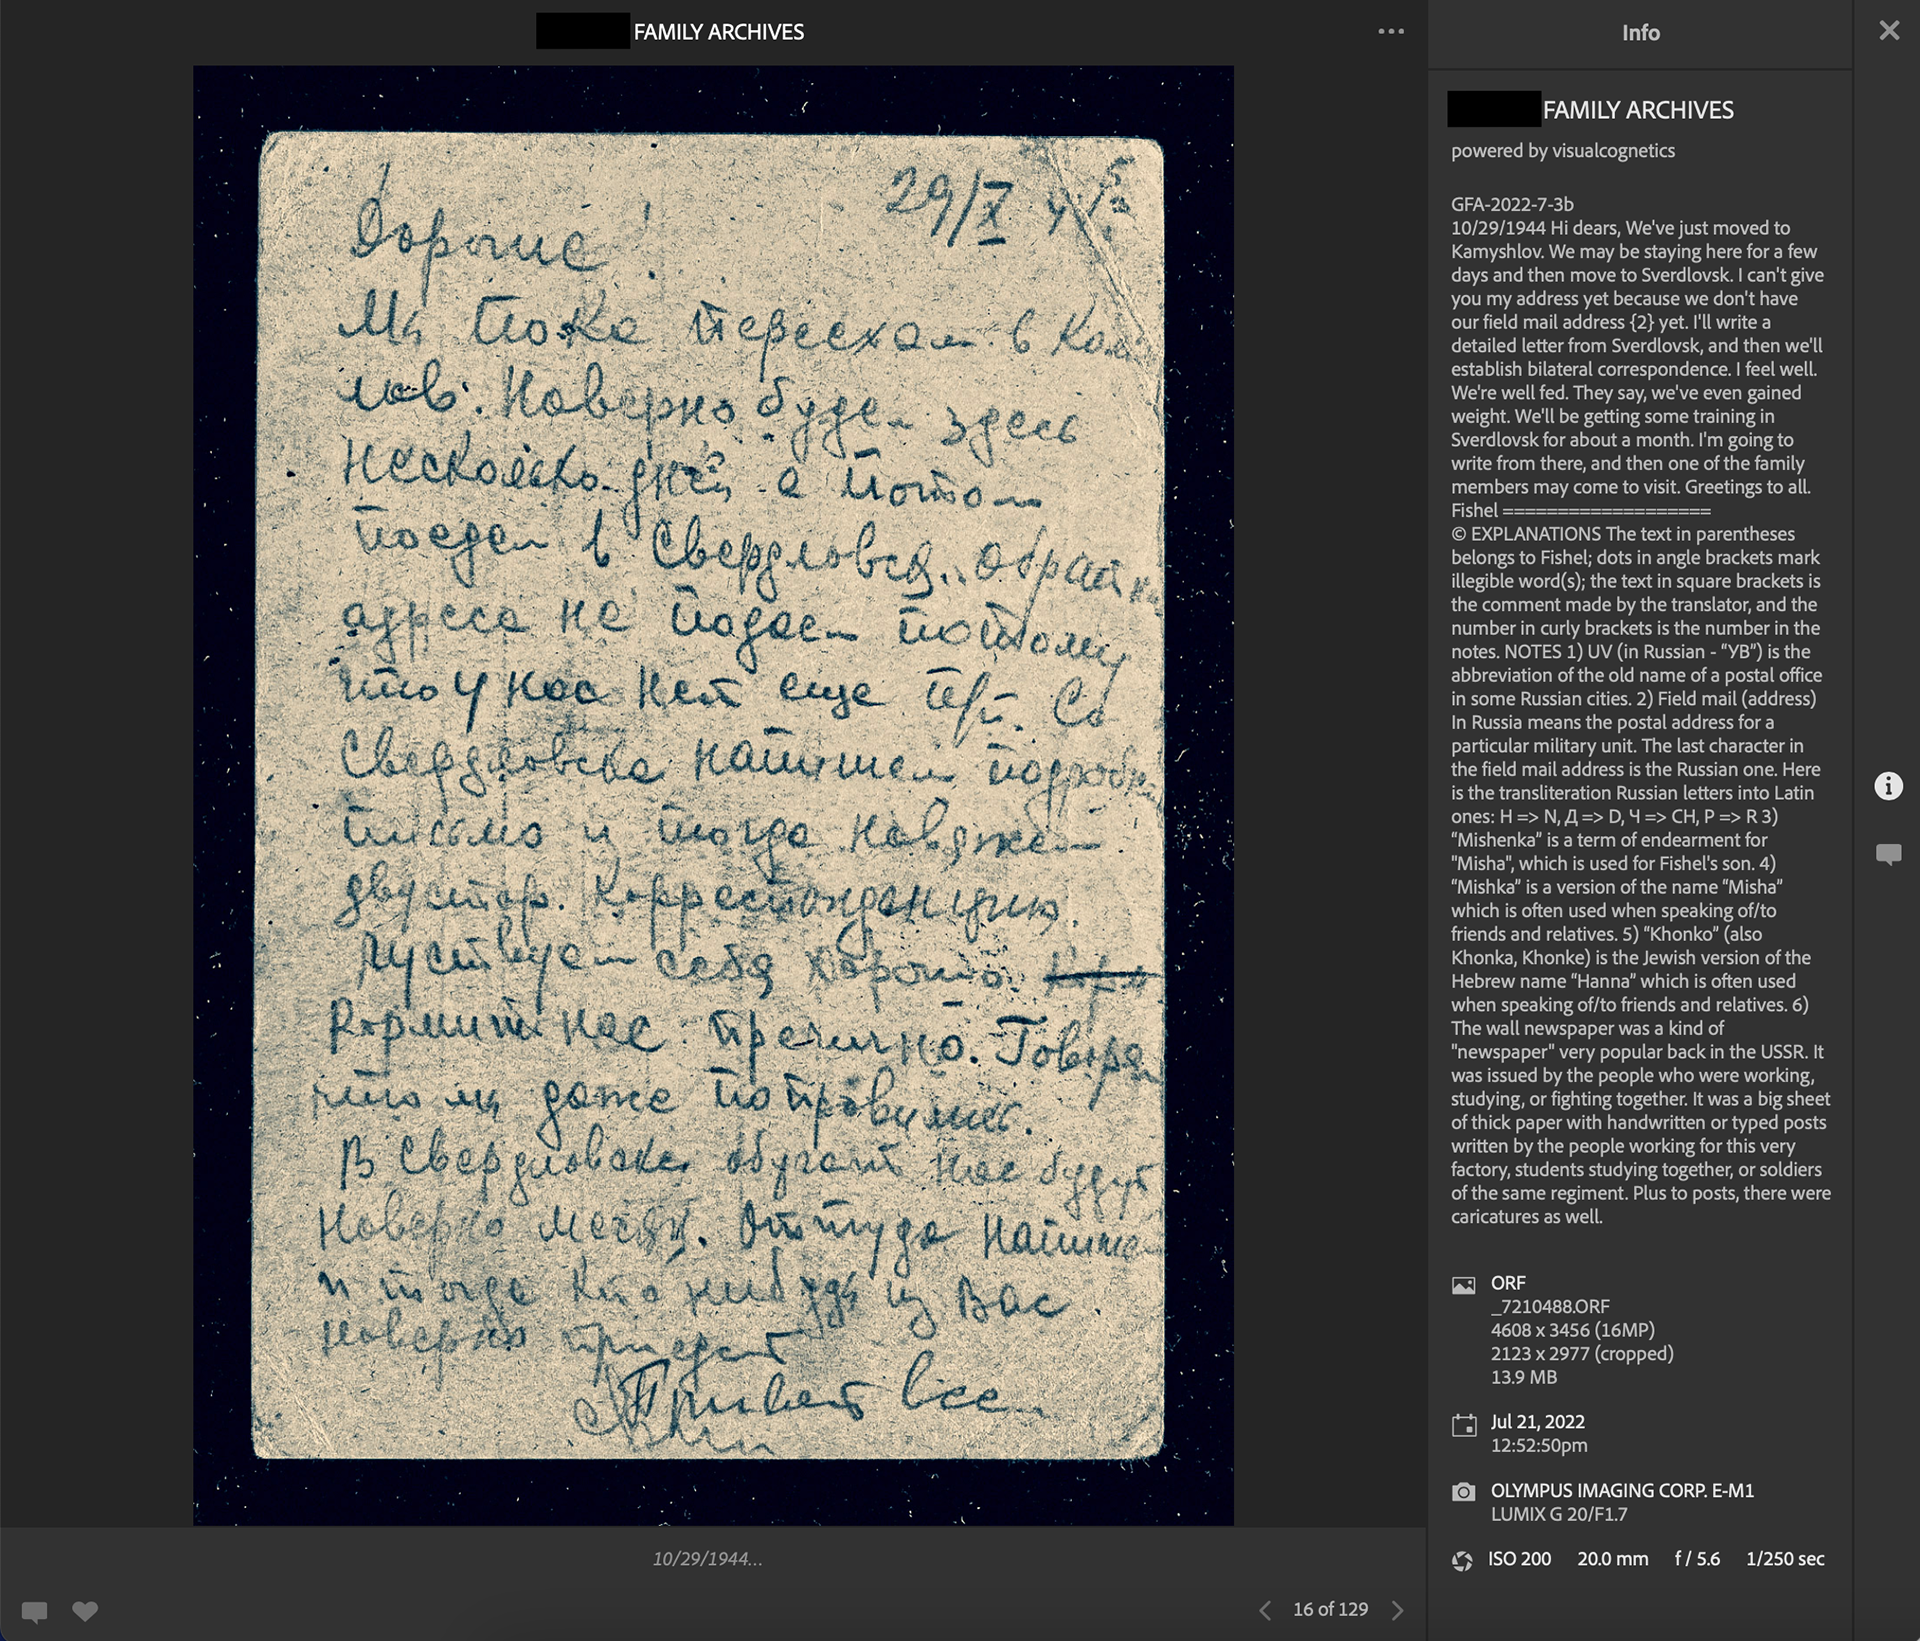 FAMILY ARCHIVES
29/X 4
Дорогие!
Мы пока переехали в Кам
лов. Наверно будем здесь
несколько дней а потом
поедем в Свердловск. обратн
адреса не подаем потому
что у нас нет еще п/п. Со
Свердловска напишем подробн
письмо и тогда навяжем
двустор. Корреспонденцию.
Чуствуем себя хорошо.
Кормит нас прелично. Говоря
что мы даже поправились.
В Свердловске обучат нас будут
Наверно месяц. Оттуда напишем
и тогда кто нибудь из Вас
наверно приедет
Привет всем
10/29/1944...
16 of 129
Info
FAMILY ARCHIVES
powered by visualcognetics
GFA-2022-7-3b
10/29/1944 Hi dears, We've just moved to
Kamyshlov. We may be staying here for a few
days and then move to Sverdlovsk. I can't give
you my address yet because we don't have
our field mail address {2} yet. I'll write a
detailed letter from Sverdlovsk, and then we'll
establish bilateral correspondence. I feel well.
We're well fed. They say, we've even gained
weight. We'll be getting some training in
Sverdlovsk for about a month. I'm going to
write from there, and then one of the family
members may come to visit. Greetings to all.
Fishel ===================
© EXPLANATIONS The text in parentheses
belongs to Fishel; dots in angle brackets mark
illegible word(s); the text in square brackets is
the comment made by the translator, and the
number in curly brackets is the number in the
notes. NOTES 1) UV (in Russian - “УВ”) is the
abbreviation of the old name of a postal office
in some Russian cities. 2) Field mail (address)
In Russia means the postal address for a
particular military unit. The last character in
the field mail address is the Russian one. Here
is the transliteration Russian letters into Latin
ones: Н => N, Д => D, Ч => CH, Р => R 3)
“Mishenka” is a term of endearment for
"Misha", which is used for Fishel's son. 4)
“Mishka” is a version of the name “Misha”
which is often used when speaking of/to
friends and relatives. 5) “Khonko” (also
Khonka, Khonke) is the Jewish version of the
Hebrew name “Hanna” which is often used
when speaking of/to friends and relatives. 6)
The wall newspaper was a kind of
"newspaper" very popular back in the USSR. It
was issued by the people who were working,
studying, or fighting together. It was a big sheet
of thick paper with handwritten or typed posts
written by the people working for this very
factory, students studying together, or soldiers
of the same regiment. Plus to posts, there were
caricatures as well.
ORF
_7210488.ORF
4608 x 3456 (16MP)
2123 x 2977 (cropped)
13.9 MB
Jul 21, 2022
12:52:50pm
OLYMPUS IMAGING CORP. E-M1
LUMIX G 20/F1.7
ISO 200 20.0 mm f / 5.6 1/250 sec